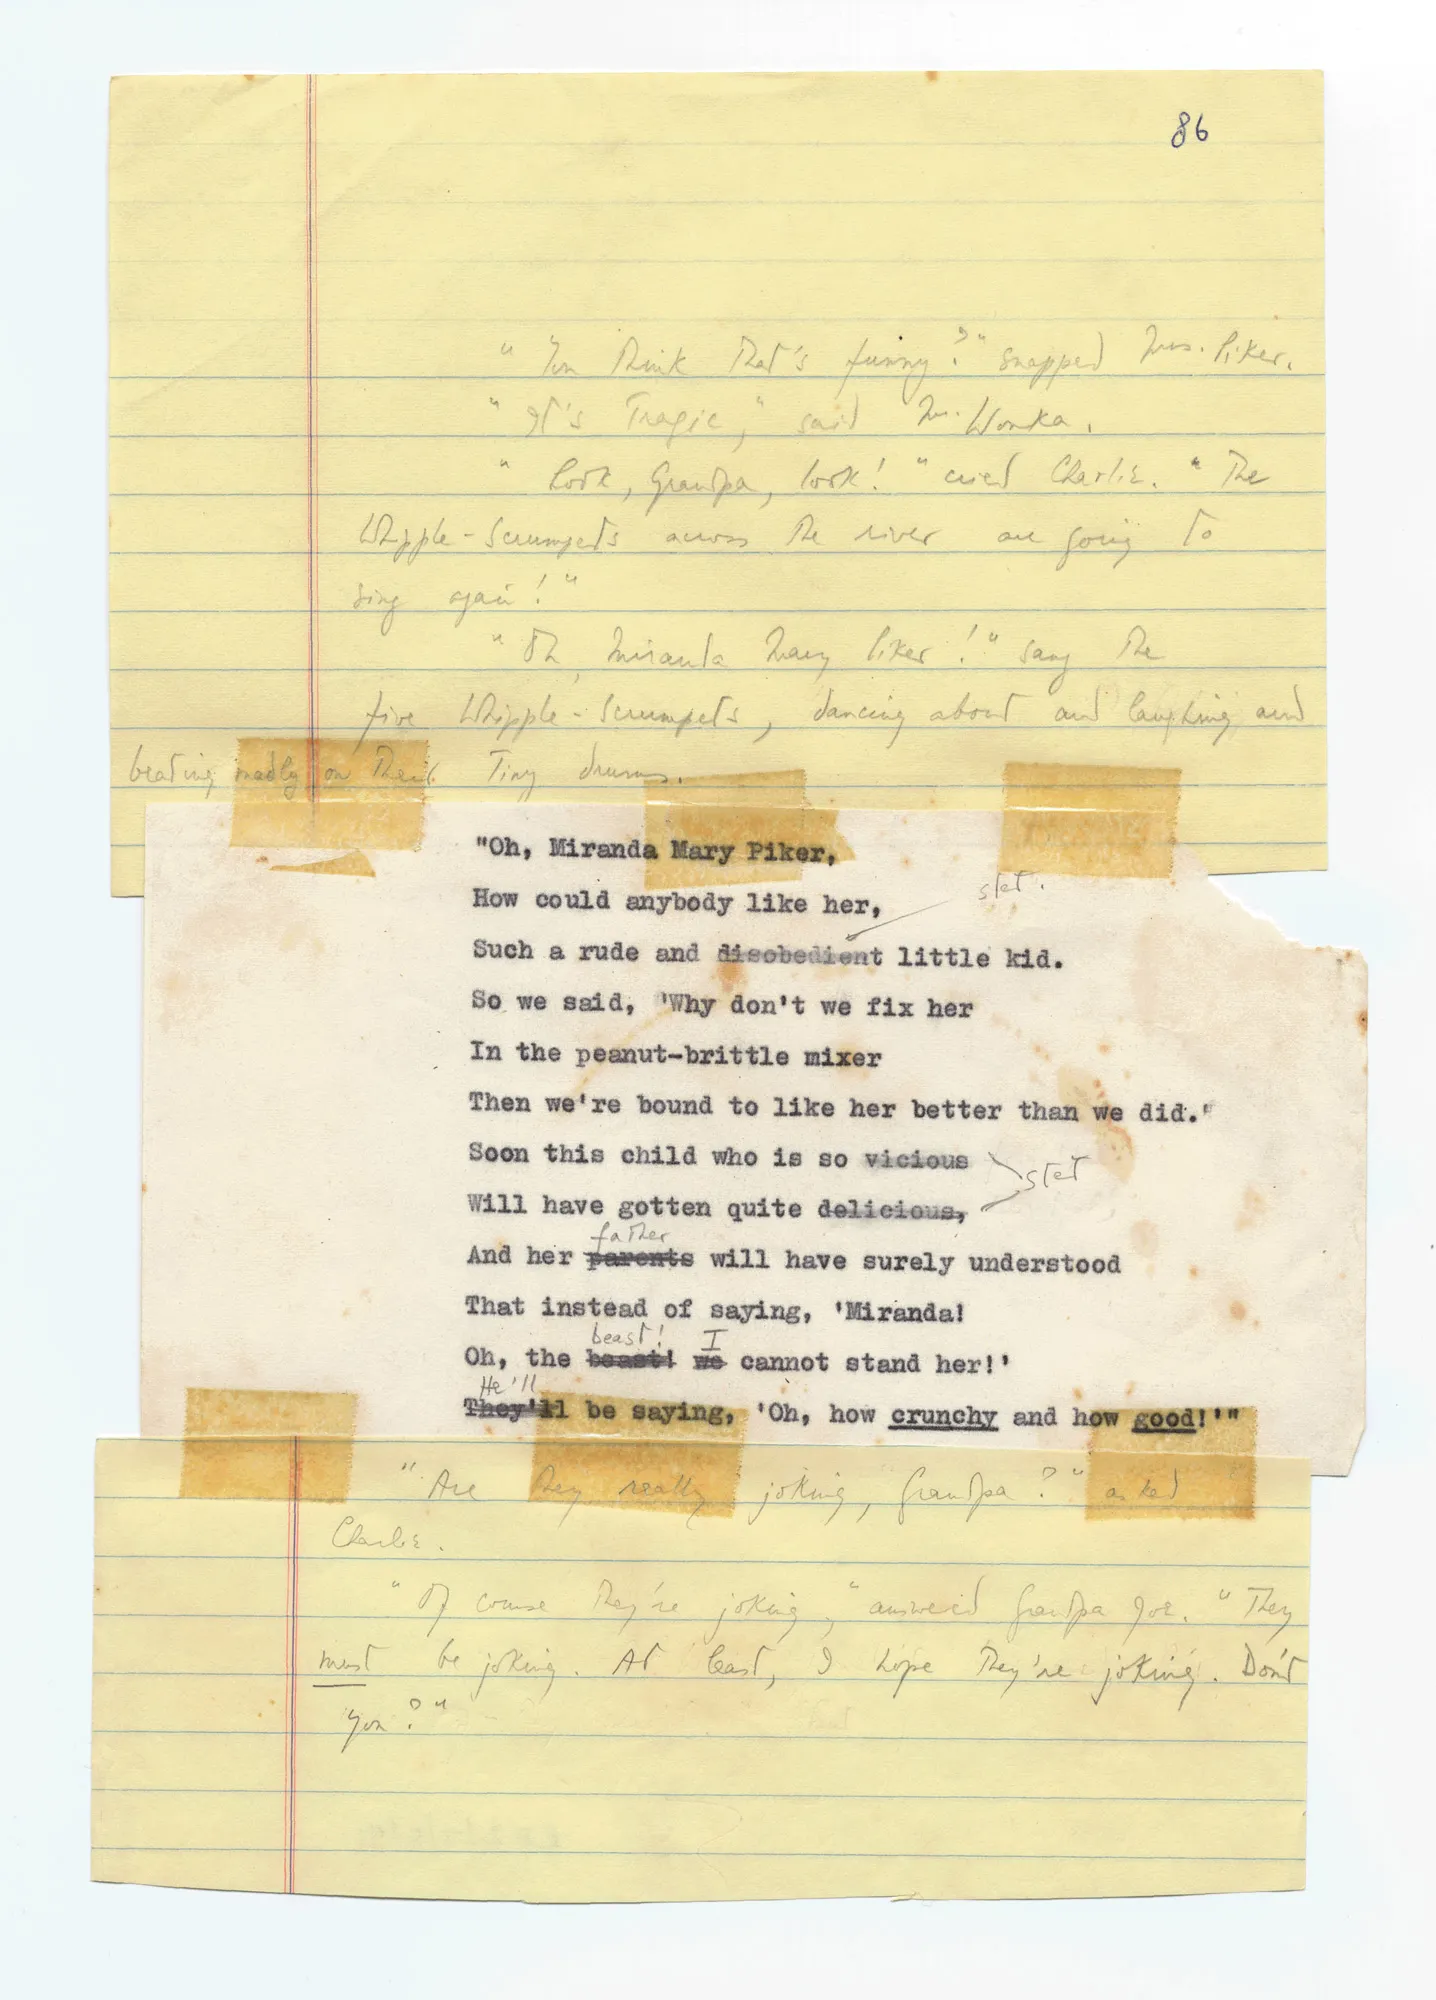 86
"You think that's funny?" snapped Mrs. Piker.
"It's Tragic," said Mr. Wonka.
"Look, Grandpa, look!" cried Charlie. "The
Whipple-Scrumpets across the river are going to
sing again!"
"Oh, Miranda Mary Piker!" sang the
five Whipple-Scrumpets, dancing about and laughing and
beating madly on their tiny drums.
"Oh, Miranda Mary Piker,
How could anybody like her,
stet.
Such a rude and disobedient little kid.
So we said, 'Why don't we fix her
In the peanut-brittle mixer
Then we're bound to like her better than we did.'
Soon this child who is so vicious
stet
Will have gotten quite delicious,
father
And her parents will have surely understood
That instead of saying, 'Miranda!
beast! I
Oh, the beast! we cannot stand her!'
He'll
They'll be saying, 'Oh, how crunchy and how good!'"
"Are they really joking, Grandpa?" asked
Charlie.
"Of course they're joking," answered Grandpa Joe. "They
must be joking. At least, I hope they're joking. Don't
you?"